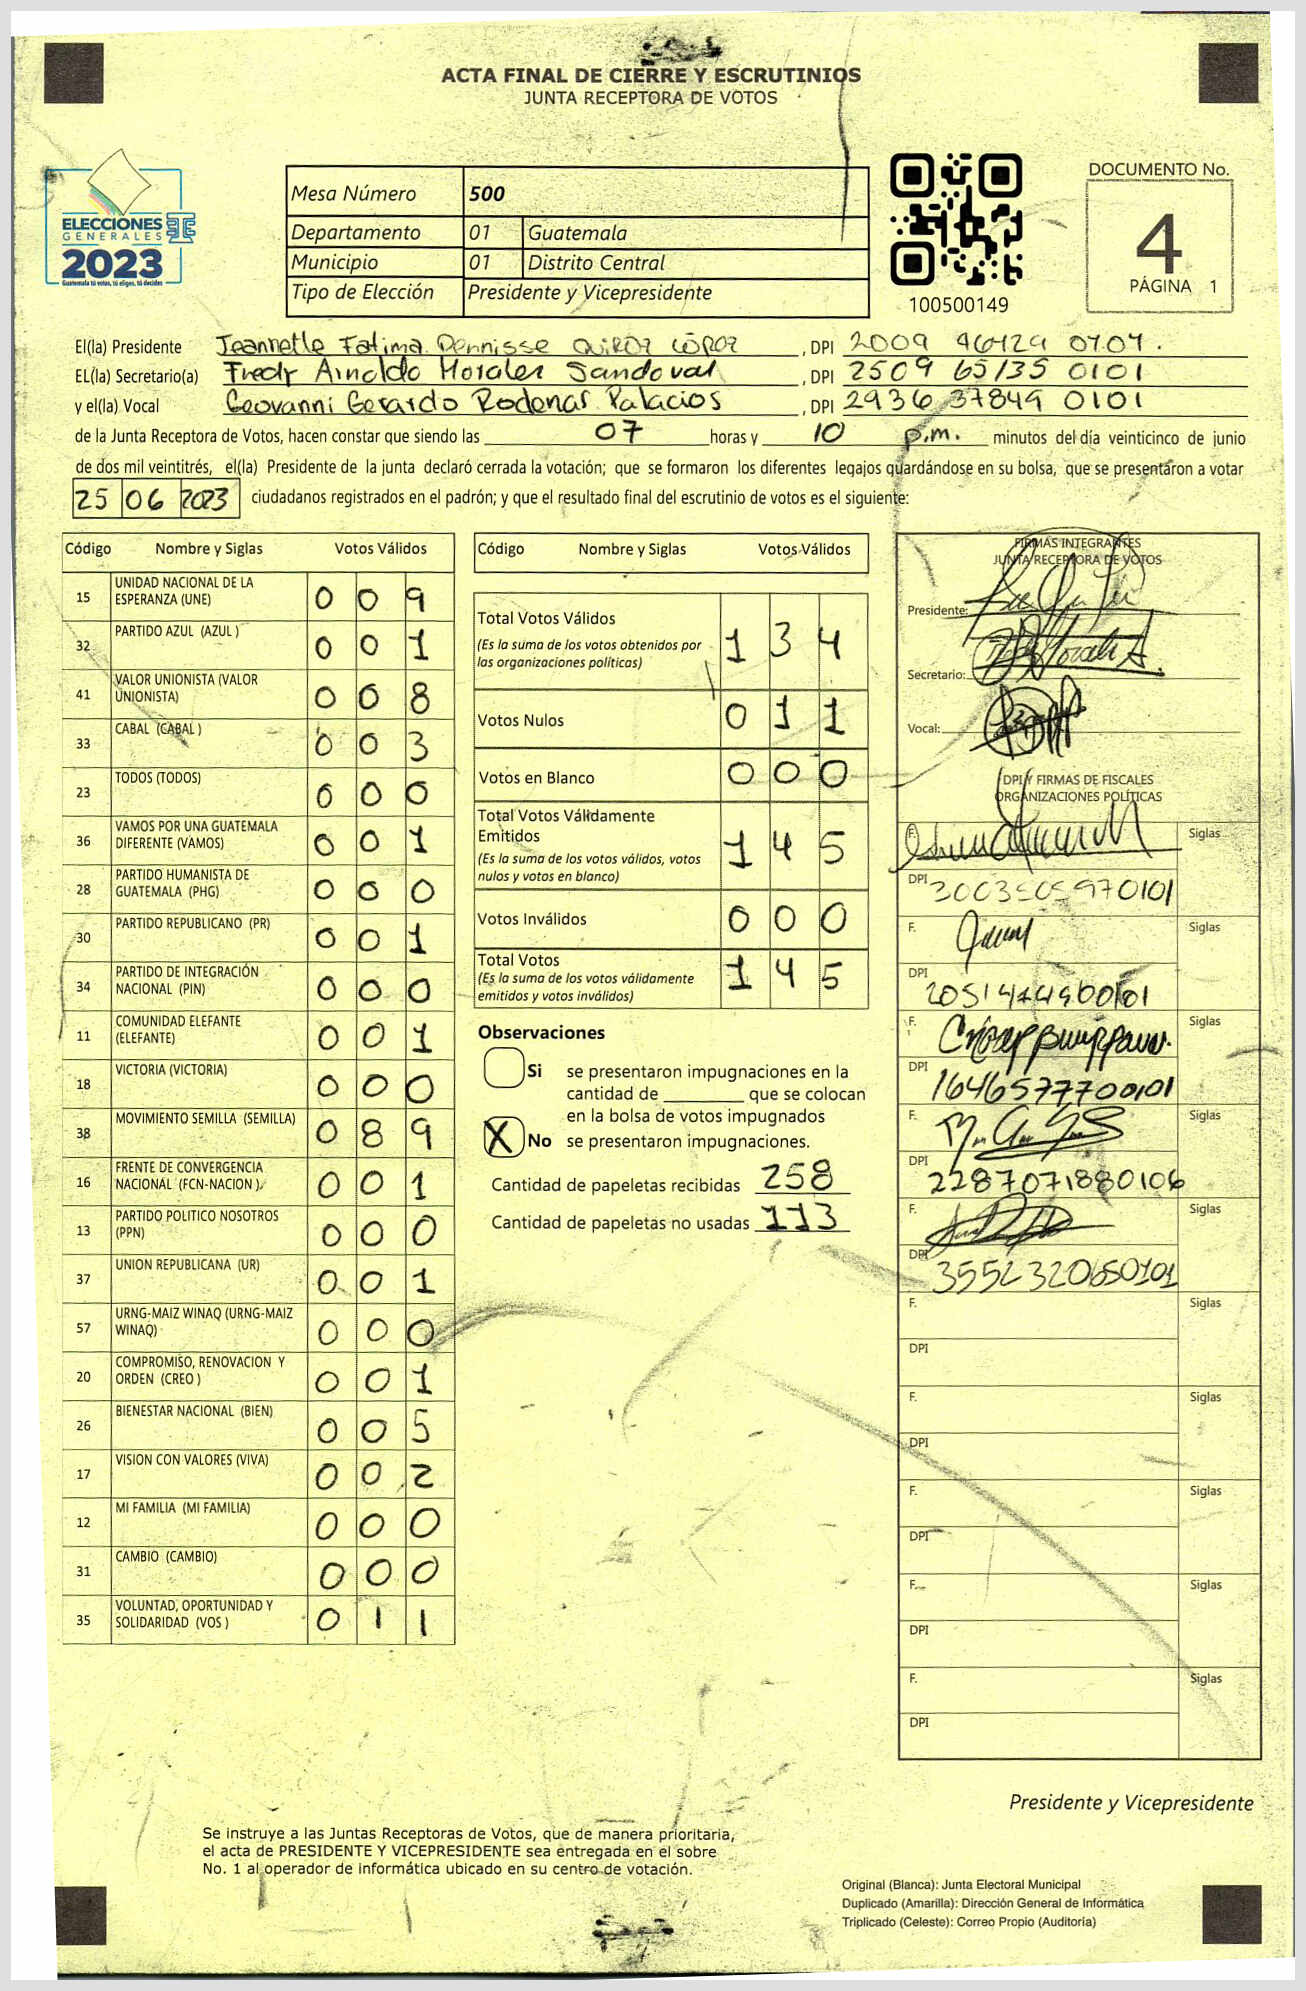 ACTA FINAL DE CIERRE Y ESCRUTINIOS
JUNTA RECEPTORA DE VOTOS
ELECCIONES
GENERALES
2023
Guatemala tú votas, tú eliges, tú decides
Mesa Número 500
Departamento 01 Guatemala
Municipio 01 Distrito Central
Tipo de Elección Presidente y Vicepresidente
100500149
DOCUMENTO No.
4
PÁGINA 1
El(la) Presidente Jeannette Fatima Dennisse , DPI 2009
EL(la) Secretario(a) Fredy Arnoldo Morales Sandoval , DPI 2509 65135 0101
y el(la) Vocal Geovanni Gerardo Rodenas Palacios , DPI 2936 37849 0101
de la Junta Receptora de Votos, hacen constar que siendo las 07 horas y 10 p.m. minutos del día veinticinco de junio
de dos mil veintitrés, el(la) Presidente de la junta declaró cerrada la votación; que se formaron los diferentes legajos guardándose en su bolsa, que se presentaron a votar
25 06 2023 ciudadanos registrados en el padrón; y que el resultado final del escrutinio de votos es el siguiente:
Código Nombre y Siglas Votos Válidos
15 UNIDAD NACIONAL DE LA ESPERANZA (UNE) 0 0 9
32 PARTIDO AZUL (AZUL ) 0 0 1
41 VALOR UNIONISTA (VALOR UNIONISTA) 0 0 8
33 CABAL (CABAL ) 0 0 3
23 TODOS (TODOS) 0 0 0
36 VAMOS POR UNA GUATEMALA DIFERENTE (VAMOS) 0 0 1
28 PARTIDO HUMANISTA DE GUATEMALA (PHG) 0 0 0
30 PARTIDO REPUBLICANO (PR) 0 0 1
34 PARTIDO DE INTEGRACIÓN NACIONAL (PIN) 0 0 0
11 COMUNIDAD ELEFANTE (ELEFANTE) 0 0 1
18 VICTORIA (VICTORIA) 0 0 0
38 MOVIMIENTO SEMILLA (SEMILLA) 0 8 9
16 FRENTE DE CONVERGENCIA NACIONAL (FCN-NACION ) 0 0 1
13 PARTIDO POLITICO NOSOTROS (PPN) 0 0 0
37 UNION REPUBLICANA (UR) 0 0 1
57 URNG-MAIZ WINAQ (URNG-MAIZ WINAQ) 0 0 0
20 COMPROMISO, RENOVACION Y ORDEN (CREO ) 0 0 1
26 BIENESTAR NACIONAL (BIEN) 0 0 5
17 VISION CON VALORES (VIVA) 0 0 2
12 MI FAMILIA (MI FAMILIA) 0 0 0
31 CAMBIO (CAMBIO) 0 0 0
35 VOLUNTAD, OPORTUNIDAD Y SOLIDARIDAD (VOS ) 0 1 1
Código Nombre y Siglas Votos Válidos
Total Votos Válidos 1 3 4
(Es la suma de los votos obtenidos por
las organizaciones políticas)
Votos Nulos 0 1 1
Votos en Blanco 0 0 0
Total Votos Válidamente
Emitidos 1 4 5
(Es la suma de los votos válidos, votos
nulos y votos en blanco)
Votos Inválidos 0 0 0
Total Votos 1 4 5
(Es la suma de los votos válidamente
emitidos y votos inválidos)
Observaciones
Si se presentaron impugnaciones en la
cantidad de ________ que se colocan
en la bolsa de votos impugnados
X No se presentaron impugnaciones.
Cantidad de papeletas recibidas 258
Cantidad de papeletas no usadas 113
FIRMAS INTEGRANTES
JUNTA RECEPTORA DE VOTOS
Presidente:
Secretario:
Vocal:
DPI Y FIRMAS DE FISCALES
ORGANIZACIONES POLÍTICAS
F. Siglas
DPI
F. Siglas
DPI
F. Siglas
DPI 1646577700101
F. Siglas
DPI 2287071880106
F. Siglas
DPI 3552320650101
F. Siglas
DPI
F. Siglas
DPI
F. Siglas
DPI
F. Siglas
DPI
F. Siglas
DPI
Presidente y Vicepresidente
Se instruye a las Juntas Receptoras de Votos, que de manera prioritaria,
el acta de PRESIDENTE Y VICEPRESIDENTE sea entregada en el sobre
No. 1 al operador de informática ubicado en su centro de votación.
Original (Blanca): Junta Electoral Municipal
Duplicado (Amarilla): Dirección General de Informática
Triplicado (Celeste): Correo Propio (Auditoría)